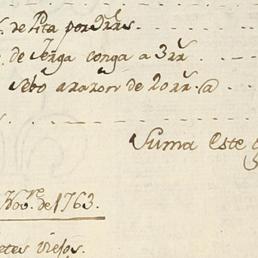 de Pita por
de Jerga conga a 3 rr
sebo a razon de 20 rr. @
Suma Este
Nov.e de 1763.
etes viejos.